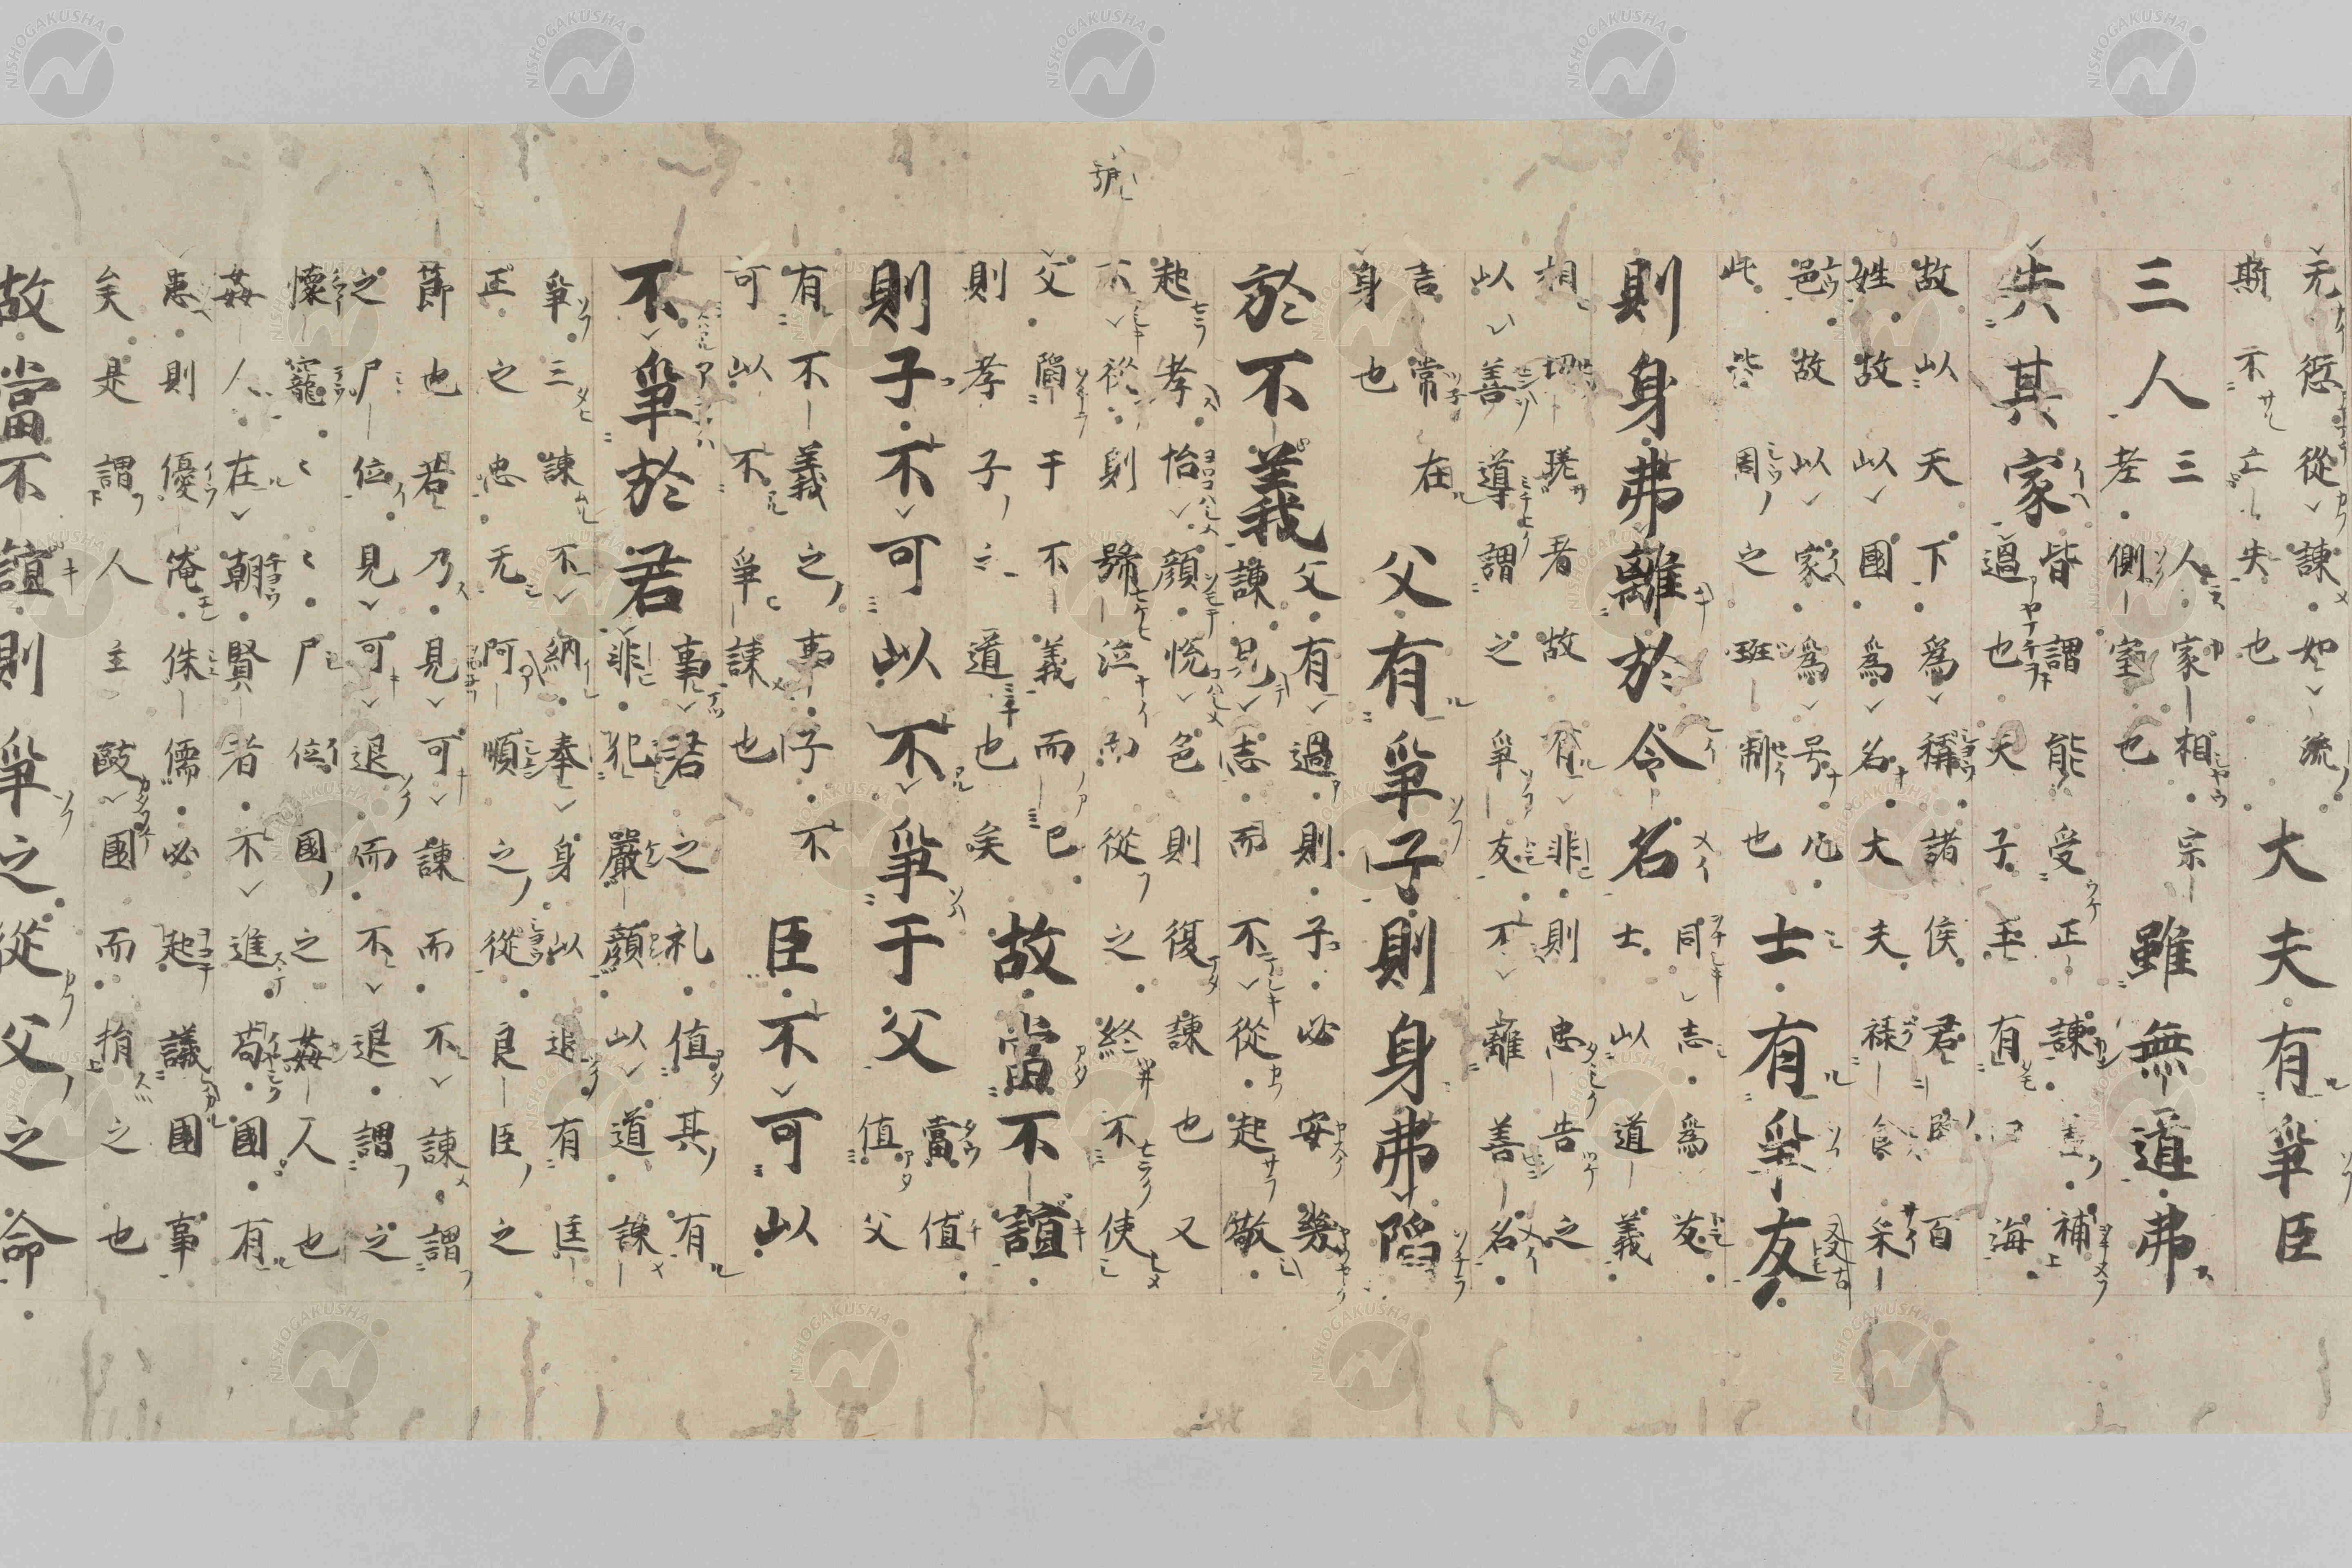 无愆從諫如流
斯不亡失也
大夫有爭臣
三人
三人家相宗
老側室也
雖無道弗
失其家
皆謂能受正諫善補
過也天子王有四海
故以天下爲稱諸侯君臨百
姓故以國爲名大夫禄食采
邑故以家爲号凡
此皆周之班制也
士有爭友
則身弗離於令名
同志爲友
士以道義
相切瑳者故有非則忠告之
以善導謂之爭友不離善名
吉常在
身也
父有爭子則身弗陷
於不義
父有過則子必安幾
諫見志而不從起敬
號
起孝怡顔悅色則復諫也又
不從則號泣而從之終不使
父陷于不義而已
則孝子之道也矣
故當不誼
則子不可以不爭于父
當值
值父
有不義之事子不
可以不爭諫也
臣不可以
不爭於君
事君之礼值其有
非犯嚴顔以道諫
爭三諫不納奉身以退有匡
正之忠无阿順之從良臣之
節也若乃見可諫而不諫謂
之尸位見可退而不退謂之
懷寵〻〻尸位國之姦人也
姦人在朝賢者不進苟國有
患則優俺侏儒必起議國事
矣是謂人主敺國而捐之也
故當不誼則爭之從父之命